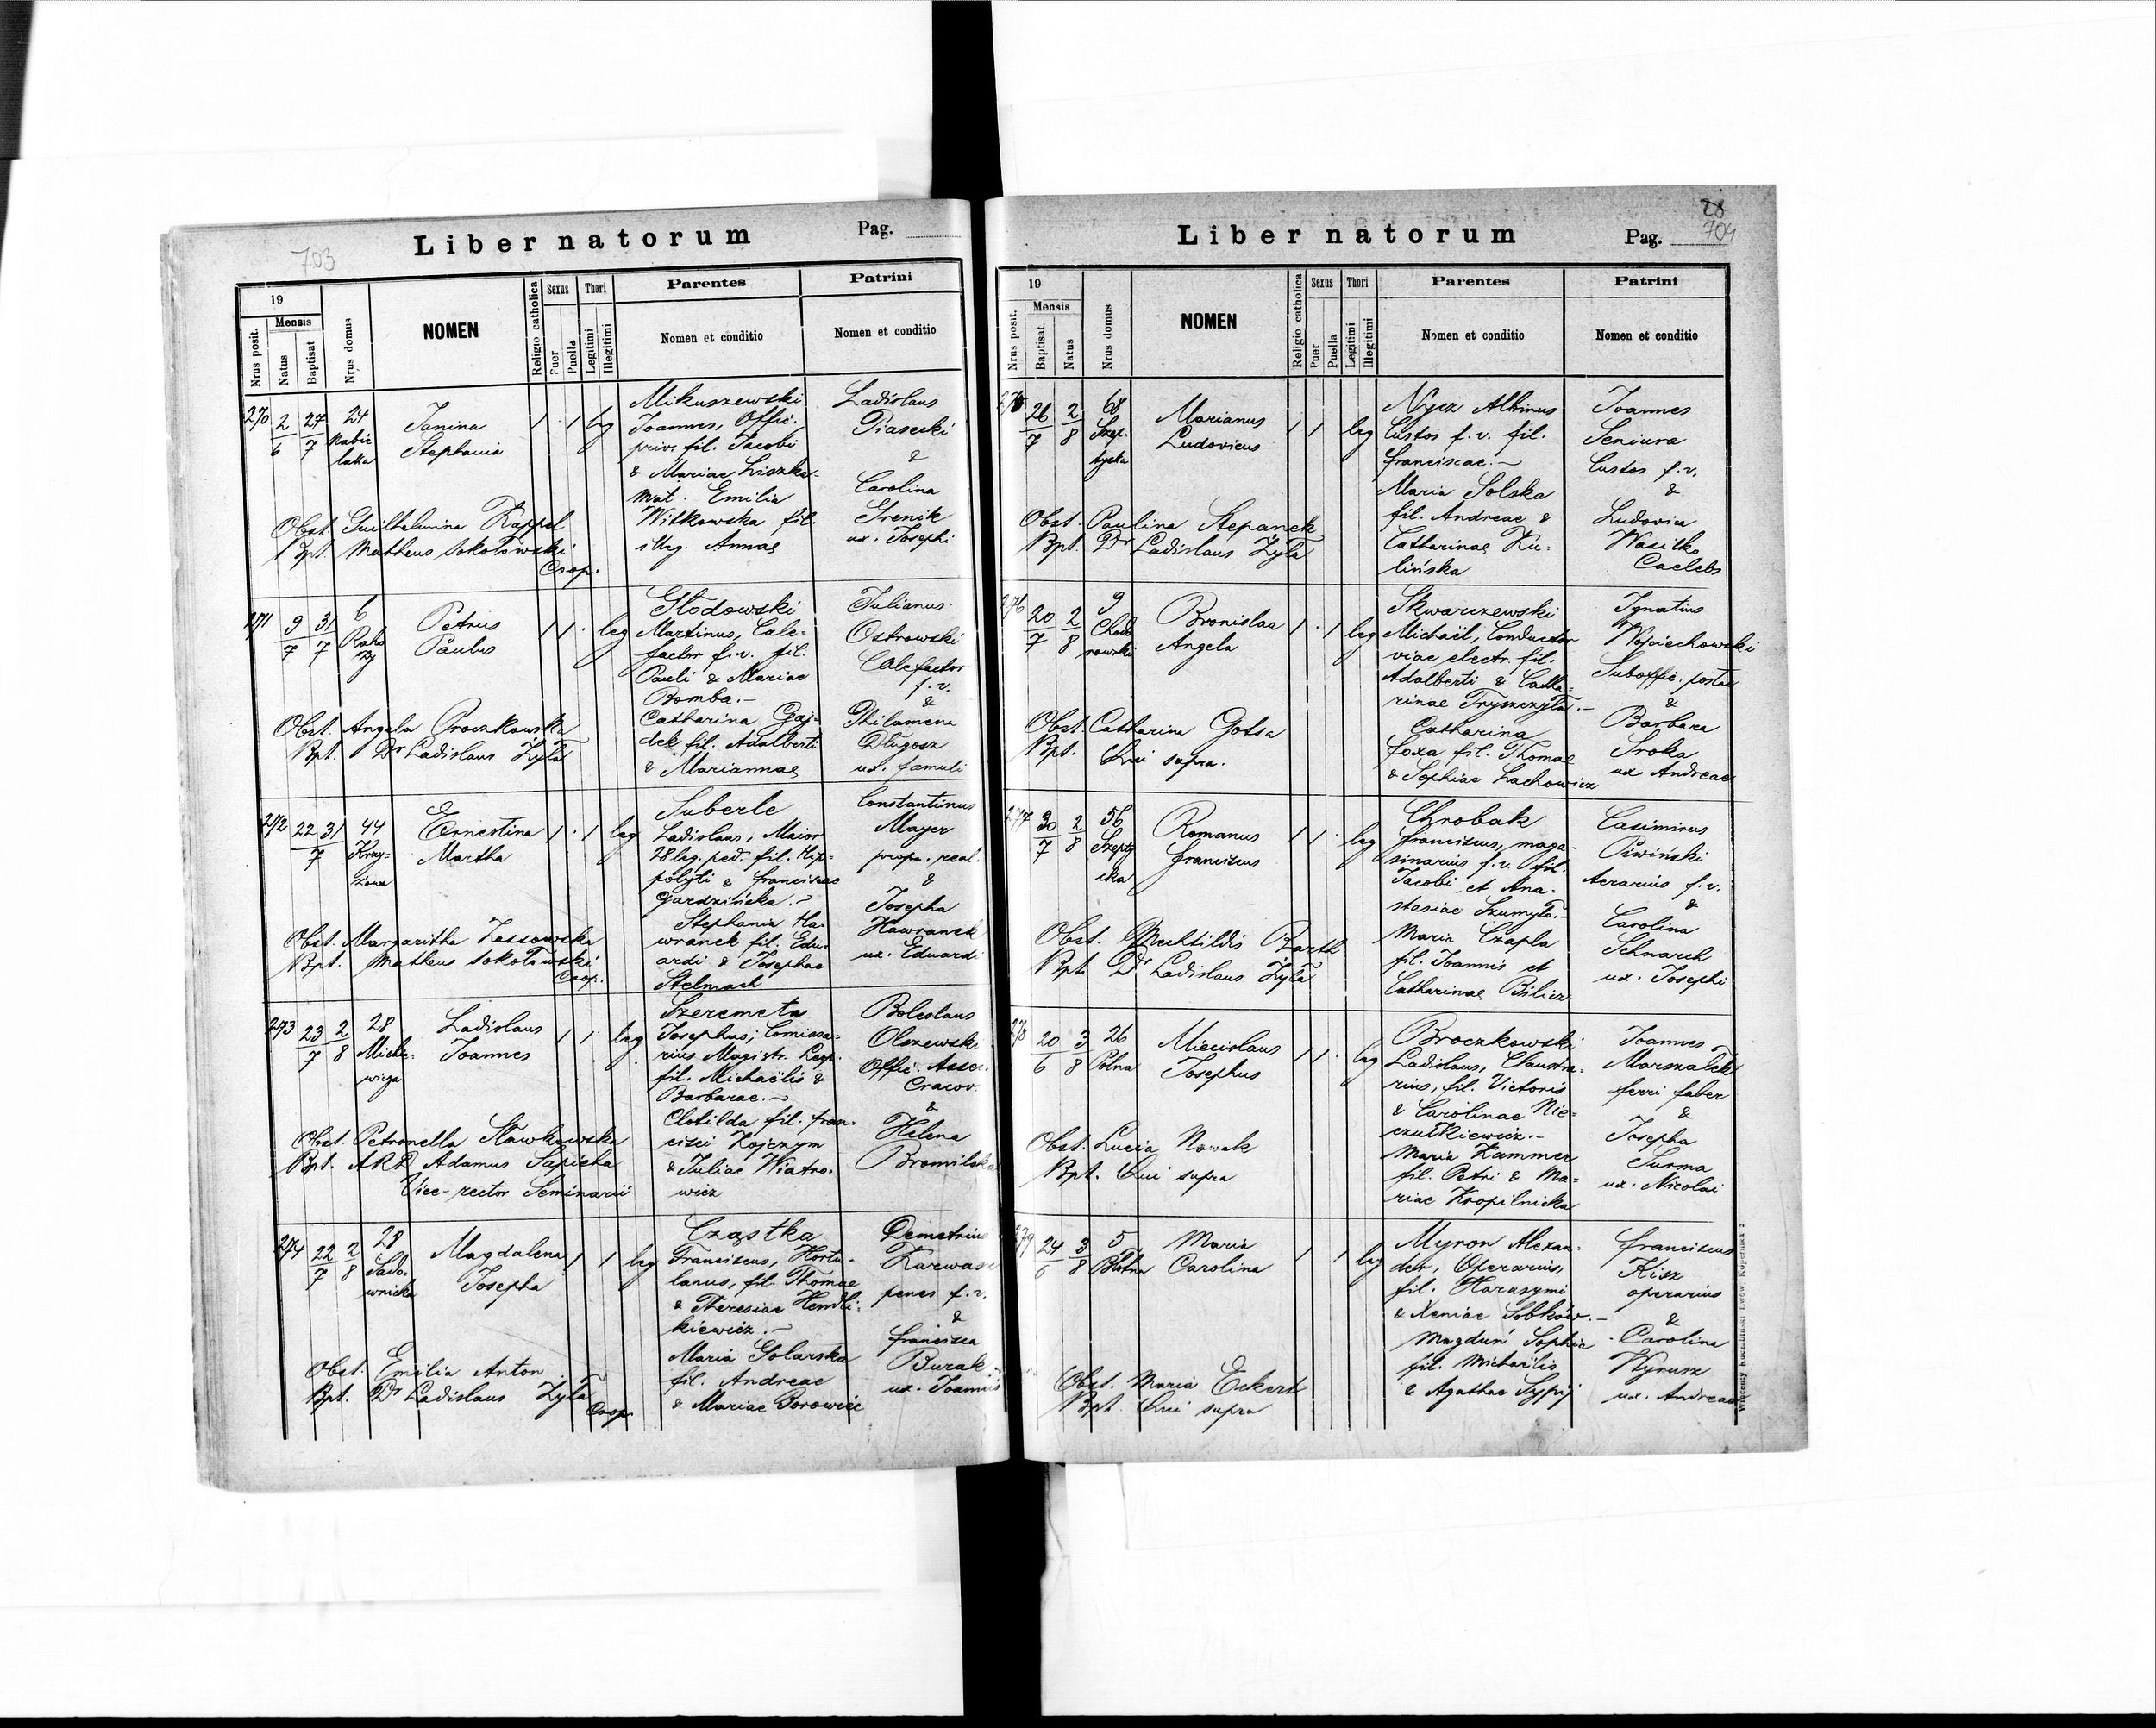 703
Liber natorum
Pag.
19
Mensis
Nrus posit.
Natus
Baptisat
Nrus domus
NOMEN
Religio catholica
Sexus
Puer
Puella
Thori
Legitimi
Illegitimi
Parentes
Nomen et conditio
Patrini
Nomen et conditio
270 2/6 27/7 24
Janina
Stephania
1 1 leg
Mikuszewski
Joannes, Offic.
priv. fil. Jacobi
& Mariae Liszka
Mat. Emilia
Witkowska fil.
illeg. Annae
Ladislaus
Piasecki
&
Carolina
Srenik
ux. Josephi
Obst. Guilhelmina Kappel
Bpt. Matheus Sokołowski
Coop.
271 9/7 31/7 6
Petrus
Paulus
1 1 leg
Głodowski
Martinus, Cale-
factor f.v. fil.
Pauli & Mariae
Bomba.-
Catharina Gaj-
dek fil. Adalberti
& Mariannae
Julianus
Ostrowski
Calefactor
f.v.
&
Philomena
Długosz
ux. famuli
Obst. Angela Proczkowska
Bpt. Dr Ladislaus Żyła
272 22 31/7 44
Krzy-
żowa
Ernestina
Martha
1 1 leg
Suberle
Ladislaus, Maior
28 leg. ped. fil. Hip-
polyti & Franciscae
Gardzińska.-
Stephania Ha-
wranek fil. Edu-
ardi & Josephae
Stelmach
Constantinus
Mayer
propr. real.
&
Josepha
Hawranek
ux. Eduardi
Obst. Margaritha Zassowska
Bpt. Matheus Sokołowski
Coop.
273 23/7 2/8 28
Mickie-
wicza
Ladislaus
Joannes
1 1 leg
Szeremeta
Josephus, Comissa-
rius Magistr. Leop.
fil. Michaëlis &
Barbarae.-
Clotilda fil. Fran-
cisci Kojczym
& Juliae Wiatro-
wicz
Boleslaus
Olszewski
Offic. Assec.
Cracov.
&
Helena
Bromilska
Obst. Petronella Sławkowska
Bpt. ARD Adamus Sapieha
Vice-rector Seminarii
274 22/7 2/8 28
Sado-
wnicka
Magdalena
Josepha
1 1 leg
Cząstka
Franciscus, Hortu-
lanus, fil. Thomae
& Theresiae Hendzi-
kiewicz.-
Maria Golarska
fil. Andreae
& Mariae Borowiec
Demetrius
Karwas
penes f.v.
&
Francisca
Burak
ux. Joannis
Obst. Emilia Anton
Bpt. Dr Ladislaus Żyła
Coop.
28
704
Liber natorum
Pag.
19
Mensis
Nrus posit.
Baptisat.
Natus
Nrus domus
NOMEN
Religio catholica
Sexus
Puer
Puella
Thori
Legitimi
Illegitimi
Parentes
Nomen et conditio
Patrini
Nomen et conditio
275 26/7 2/8 68
Szep-
tycka
Marianus
Ludovicus
1 1 leg
Nycz Albinus
Custos f.v. fil.
Franciscae.-
Maria Solska
fil. Andreae &
Catharinae Ku-
lińska
Joannes
Seniura
Custos f.v.
&
Ludovica
Wasilko
Caelebs
Obst. Paulina Stepanek
Bpt. Dr Ladislaus Żyła
276 20/7 2/8 9
Chod-
rowski
Bronislaa
Angela
1 1 leg
Skwarczewski
Michaël, Conductor
viae electr. fil.
Adalberti & Catha-
rinae Tryszczyła.-
Catharina
Coxa fil. Thomae
& Sophiae Lachowicz
Ignatius
Wojciechowski
Suboffic. postae
&
Barbara
Sroka
ux Andreae
Obst. Catharina Godsa
Bpt. Qui supra.
277 30/7 2/8 56
Szepty
cka
Romanus
Franciscus
1 1 leg
Chrobak
Franciscus, maga-
sinarius f.v. fil.
Jacobi et Ana-
stasiae Szumyło.-
Maria Czapla
fil. Joannis et
Catharinae Bilicz
Casimirus
Piwiński
Aerarius f.v.
&
Carolina
Schnarch
ux. Josephi
Obst. Mechtildis Barth
Bpt. Dr Ladislaus Żyła
278 20/6 3/8 26
Polna
Miecislaus
Josephus
1 1 leg
Broczkowski
Ladislaus, Claustra-
rius, fil. Victoris
& Carolinae Nie-
czułkiewicz.-
Maria Kammer
fil. Petri & Ma-
riae Kropilnicka
Joannes
Marszałek
ferri faber
&
Josepha
Surma
ux. Nicolai
Obst. Lucia Nowak
Bpt. Qui supra
279 24/6 3/8 5
Błotna
Maria
Carolina
1 1 leg
Myron Alexan-
der, Operarius,
fil. Harasymi
& Xeniae Sobków.-
Magduń Sophia
fil. Michaëlis
& Agathae Sypij
Franciscus
Kisz
operarius
&
Carolina
Wyrusz
ux. Andreae
Obst. Maria Eckert
Bpt. Qui supra